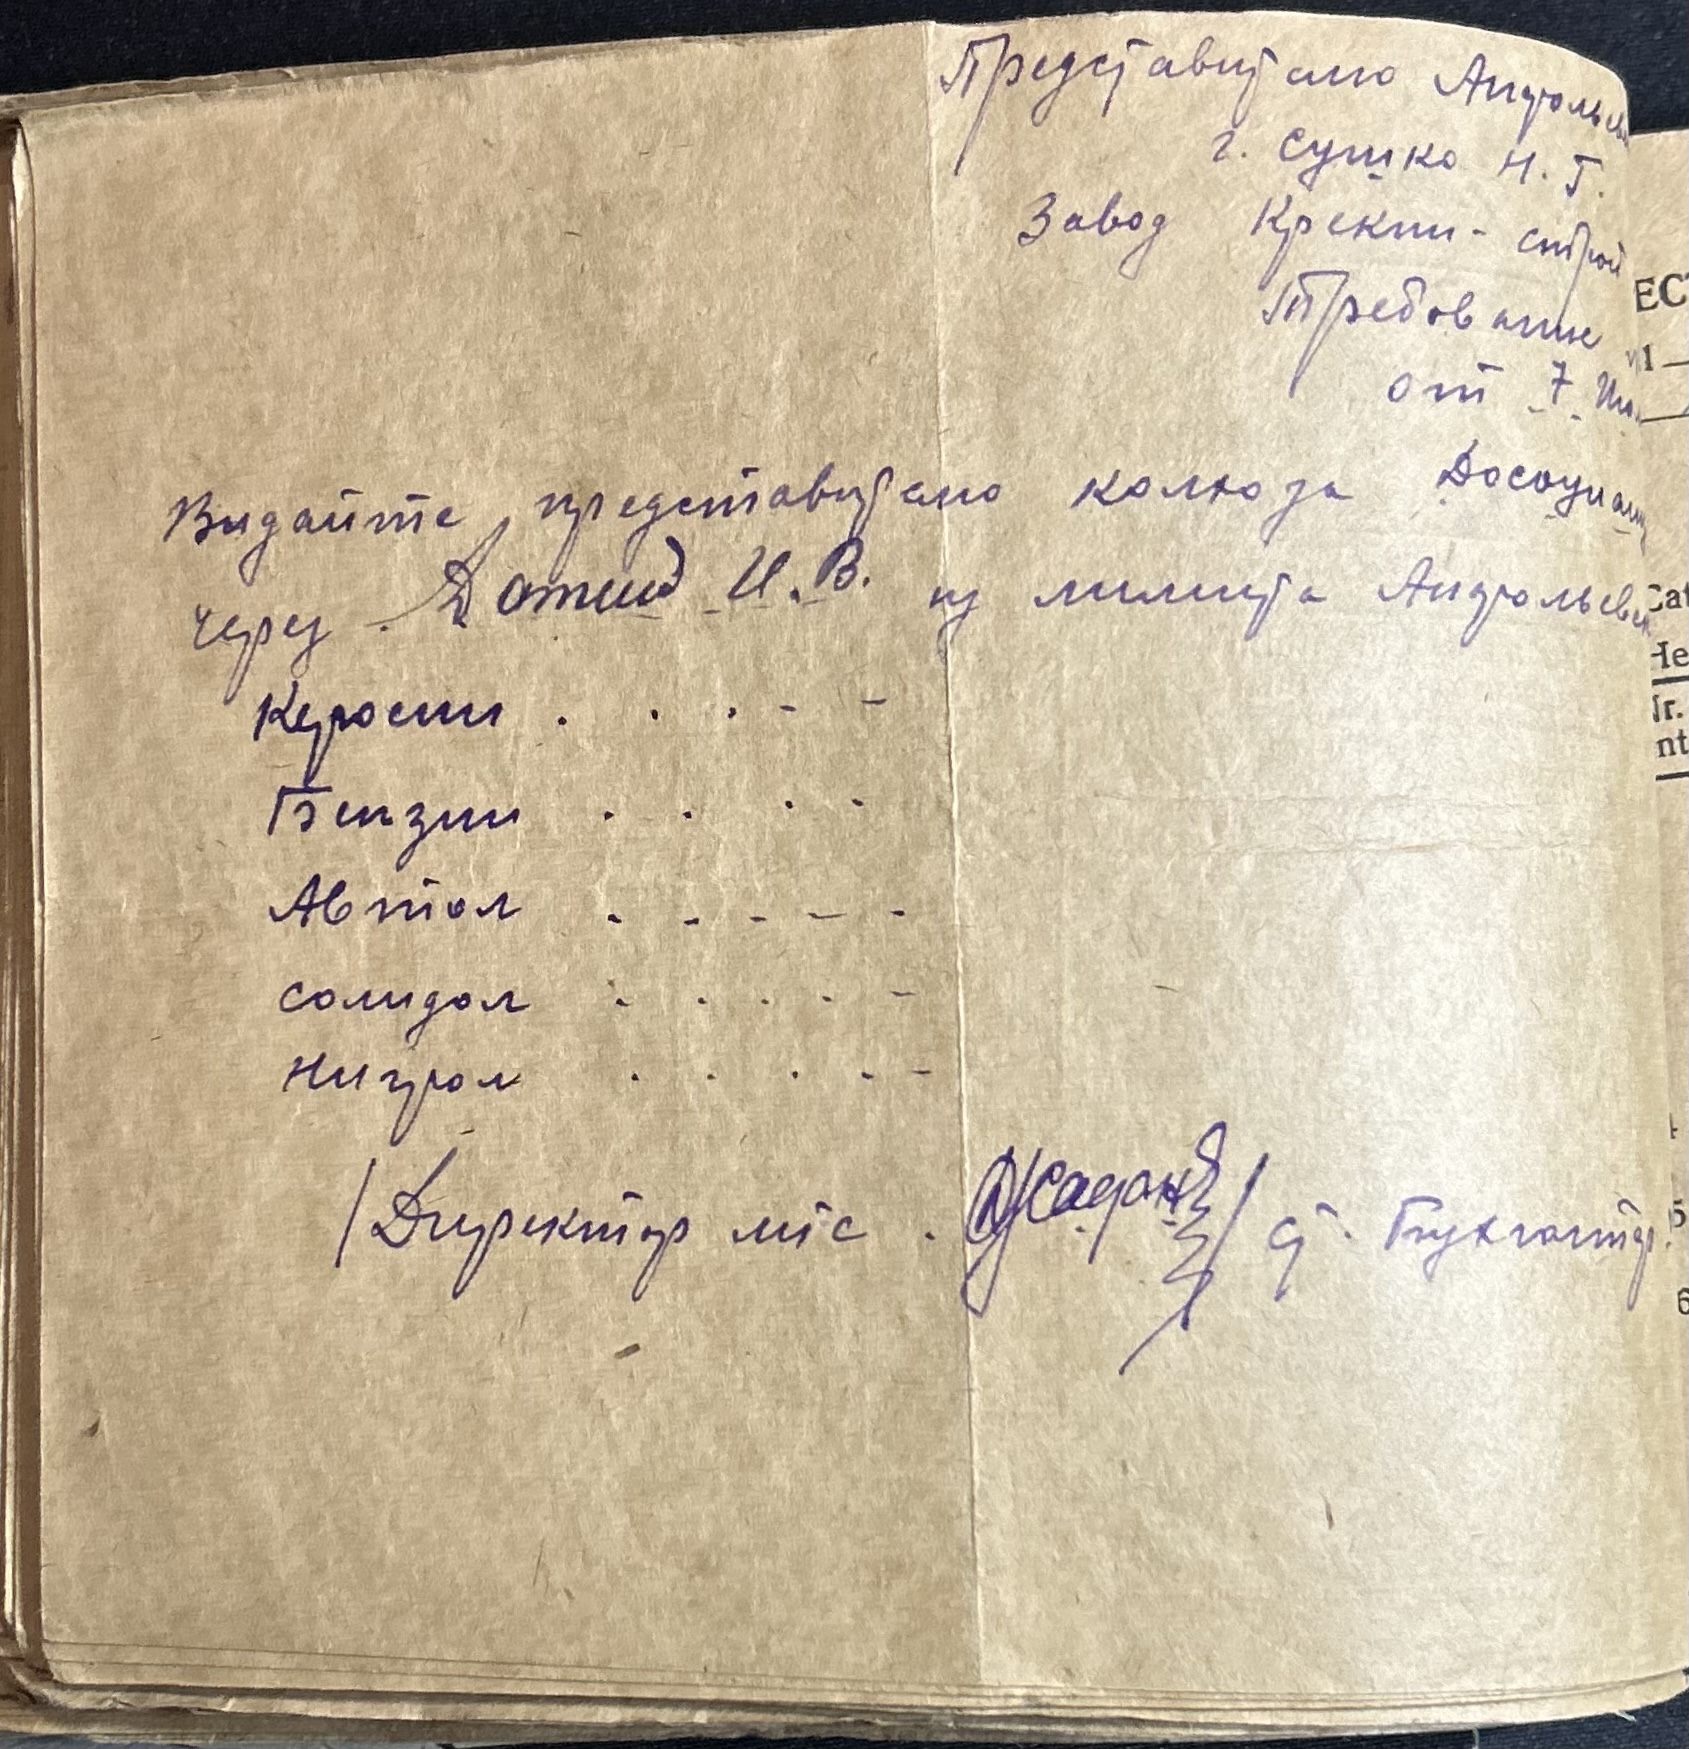 Представителю Андрюльев
г. Сушко Н. Г.
Завод Крекин-строй
Требование
от 7
Видайте представителю колхоза
через И. В. из лимита Андрюльев
Керосин . . . - -
Бензин . . . .
Автол . . - - -
Солидол . . . . -
Нигрол . . . . -
/Директор мтс . / ст. Бухгалтер
ЕС
1 —
Cat
He
Nr.
nt
5
6